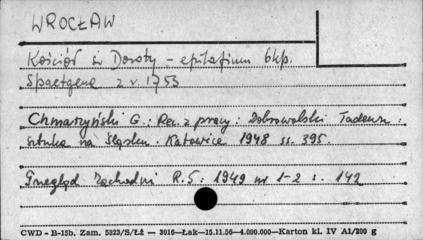 WROCŁAW
Kościół św Doroty - epitafium bkp.
Spaetgena z r. 1753
Chmarzyński G.: Rec. z pracy: Dobrowolski Tadeusz:
sztuka na Śląsku. Katowice 1948 ss. 395.
Przegląd Zachodni R.5: 1949 nr 1-2 s. 142
CWD - B-15b. Zam. 5823/S/ŁŻ — 3016—Łak—15.11.56—4.000.000—Karton kl. IV A1/200 g